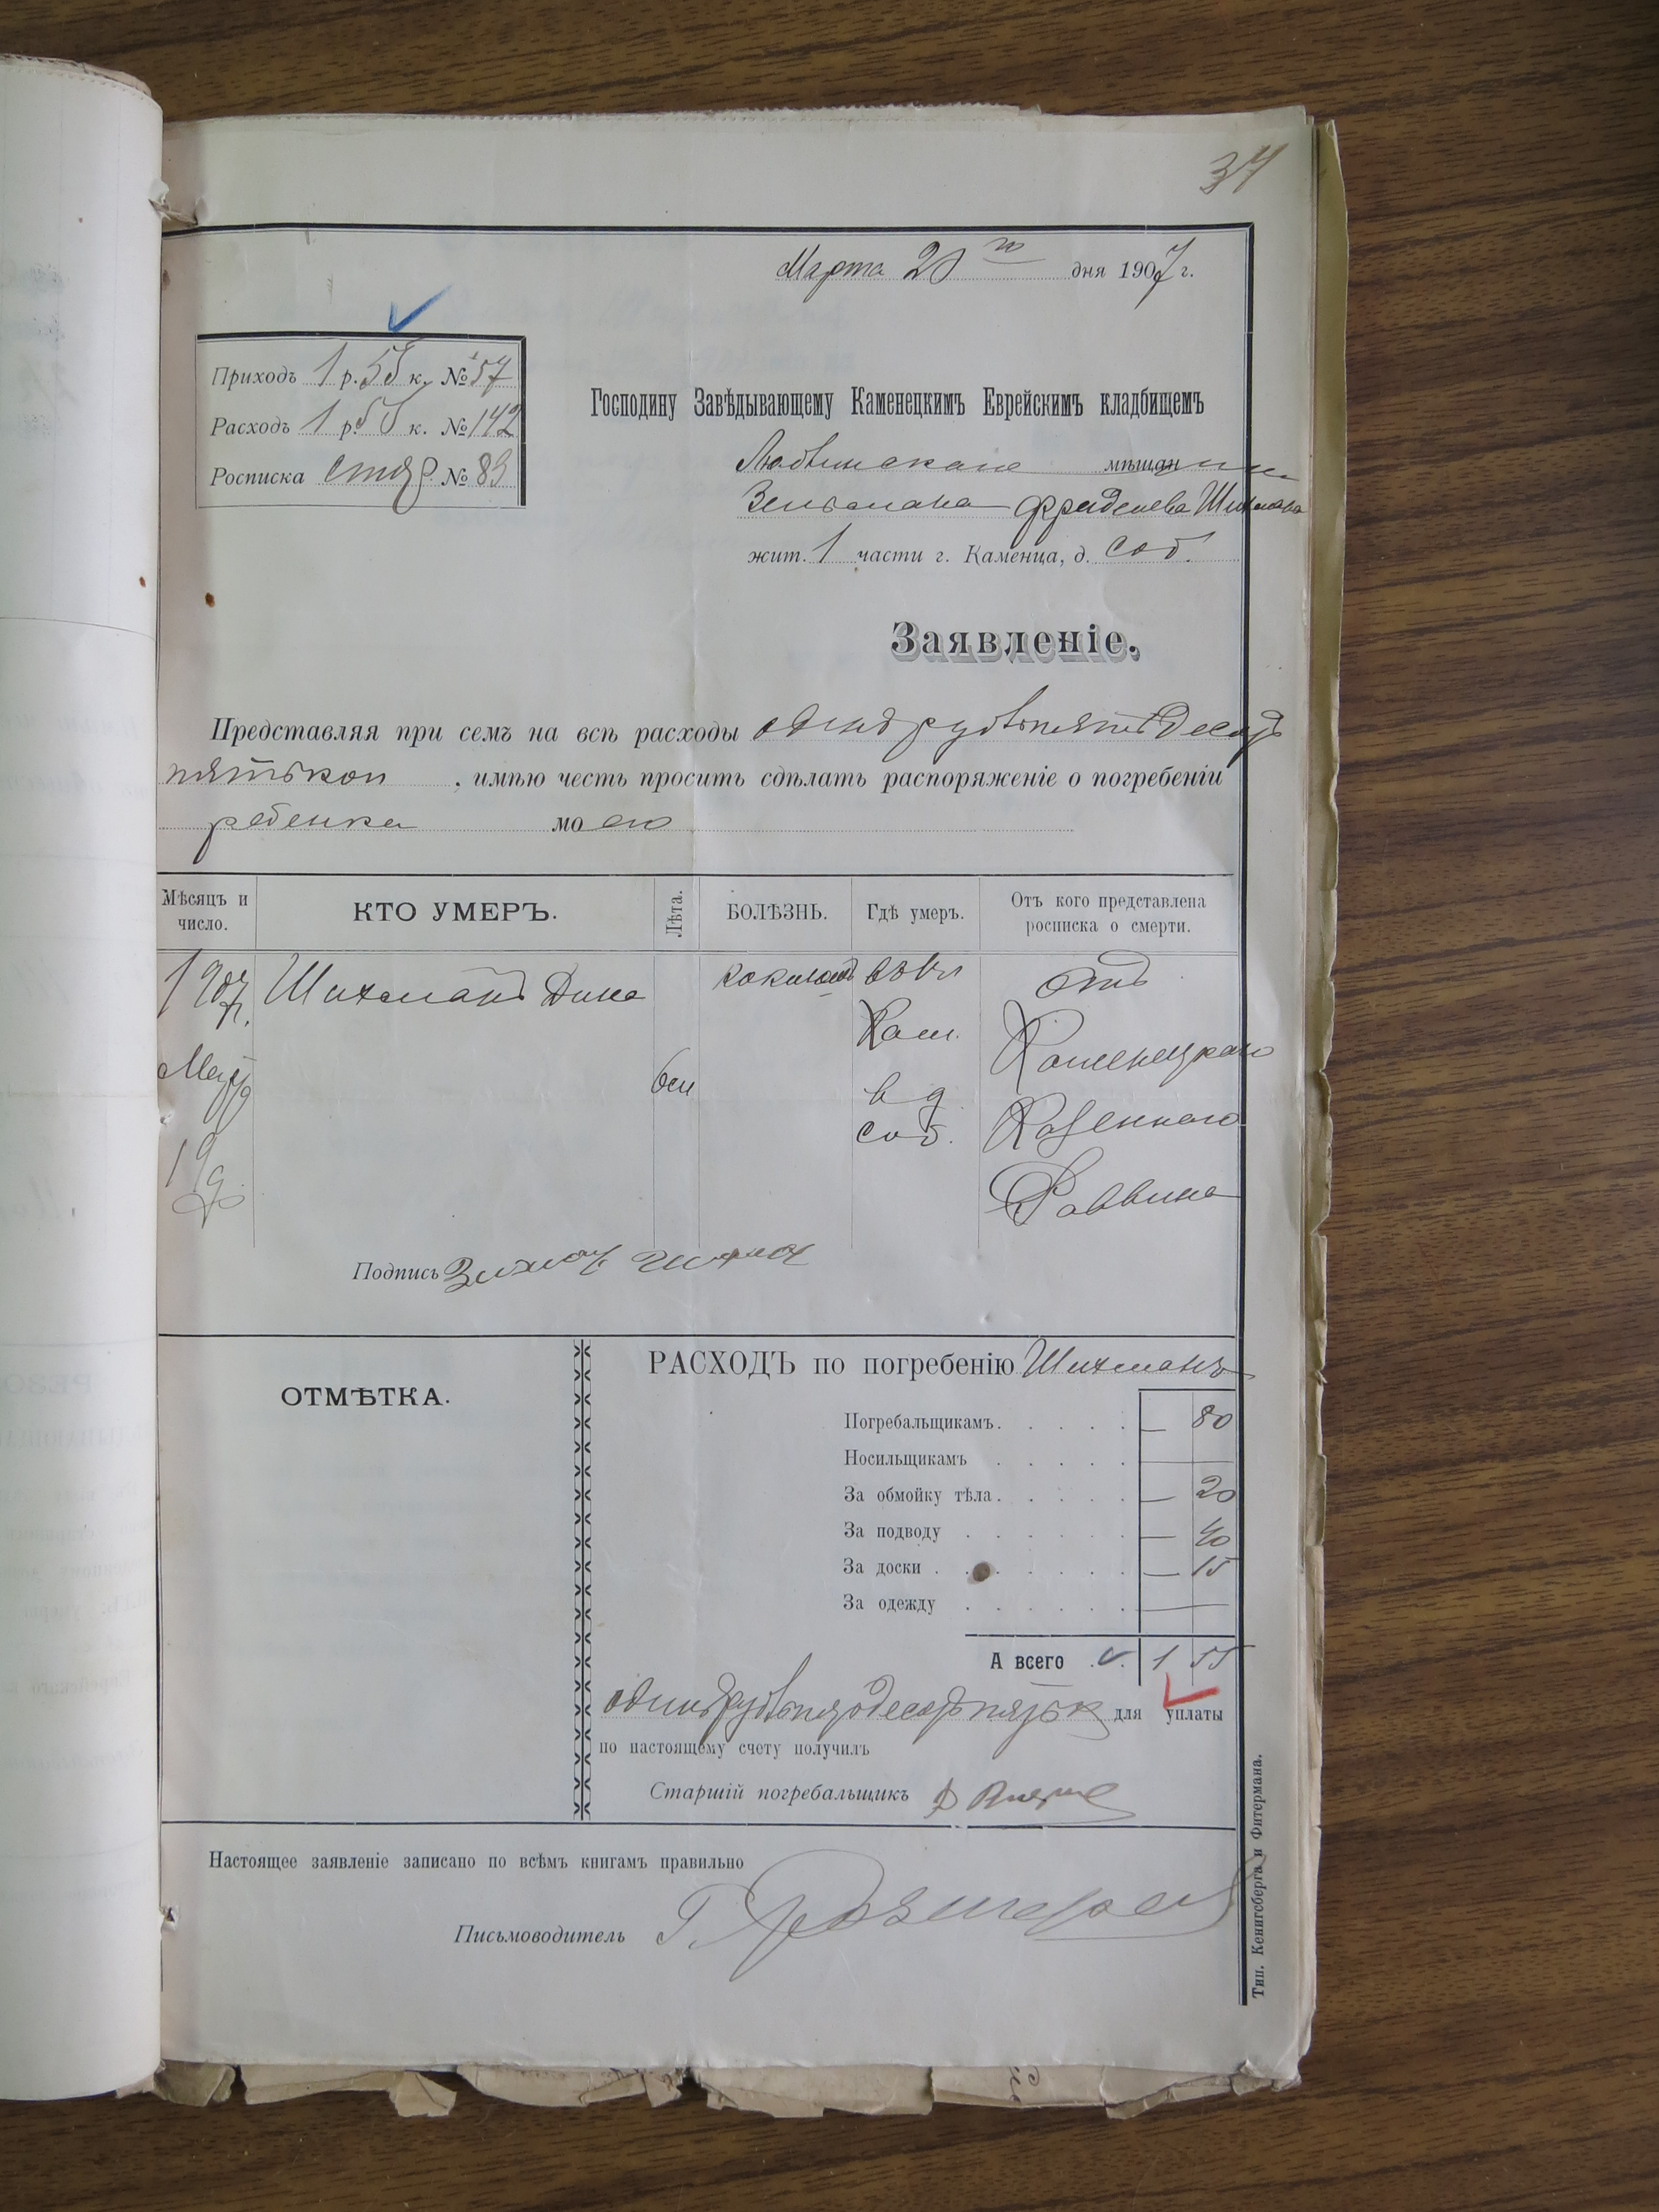 37
Марта 20 го дня 1907 г.
Приходъ 1 р. 55 к. № 57
Расходъ 1 р. 55 к. № 142
Росписка № 83
Господину Завѣдывающему Каменецкимъ Еврейскимъ кладбищемъ
мѣщан
Зельмана
жит. 1 части г. Каменца, д. Соб.
Заявленіе.
Представляя при семъ на всѣ расходы одинъ рубль пятьдесятъ
пять коп , имѣю честь просить сдѣлать распоряженіе о погребеніи
ребенка моего
Мѣсяцъ и число. КТО УМЕРЪ. Лѣта. БОЛѢЗНЬ. Гдѣ умеръ. Отъ кого представлена росписка о смерти.
1907 г. Шихманъ Дина въ Отъ
Кам. Каменецкаго
Марта 6 м в д. Казеннаго
19 д. соб. Раввина
Подпись
ОТМѢТКА.
РАСХОДЪ по погребенію Шихманъ
Погребальщикамъ. . . . . — 80
Носильщикамъ . . . . .
За обмойку тѣла. . . . . — 20
За подводу . . . . . . — 40
За доски . . . . . . — 15
За одежду . . . . . . —
А всего . . 1 55
одинъ рубль пятьдесятъ пять к для уплаты
по настоящему счету получилъ
Старшій погребальщикъ
Настоящее заявленіе записано по всѣмъ книгамъ правильно
Письмоводитель
Тип. Кенигсберга и Фитермана.